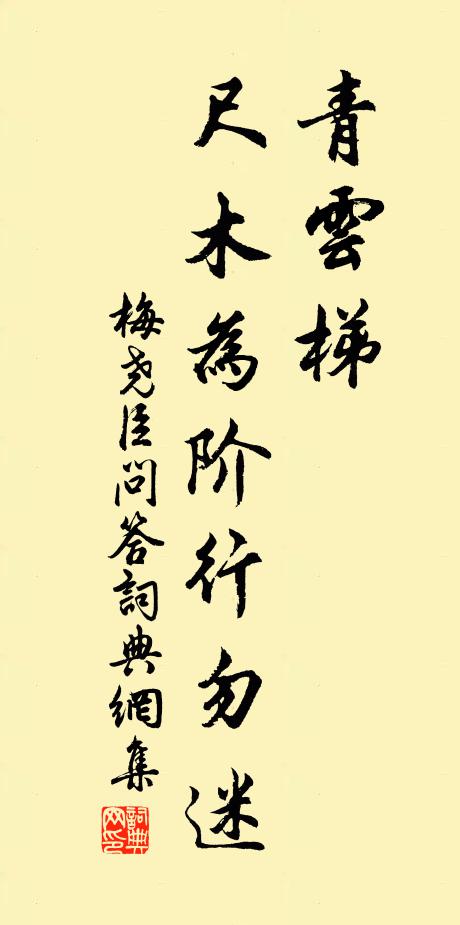 青雲梯
尺木為阶行勿迷
梅尧臣問答詞典網集
詞典网印